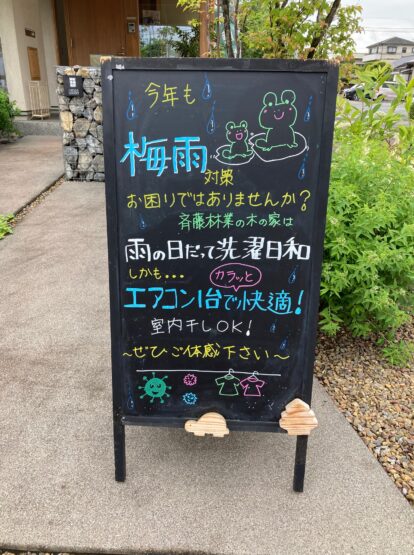 今年も
梅雨
対策
お困りではありませんか?
斉藤林業の木の家は
雨の日だって洗濯日和
しかも...
カラッと
エアコン1台で快適!
室内干しOK!
~ぜひご体感下さい~